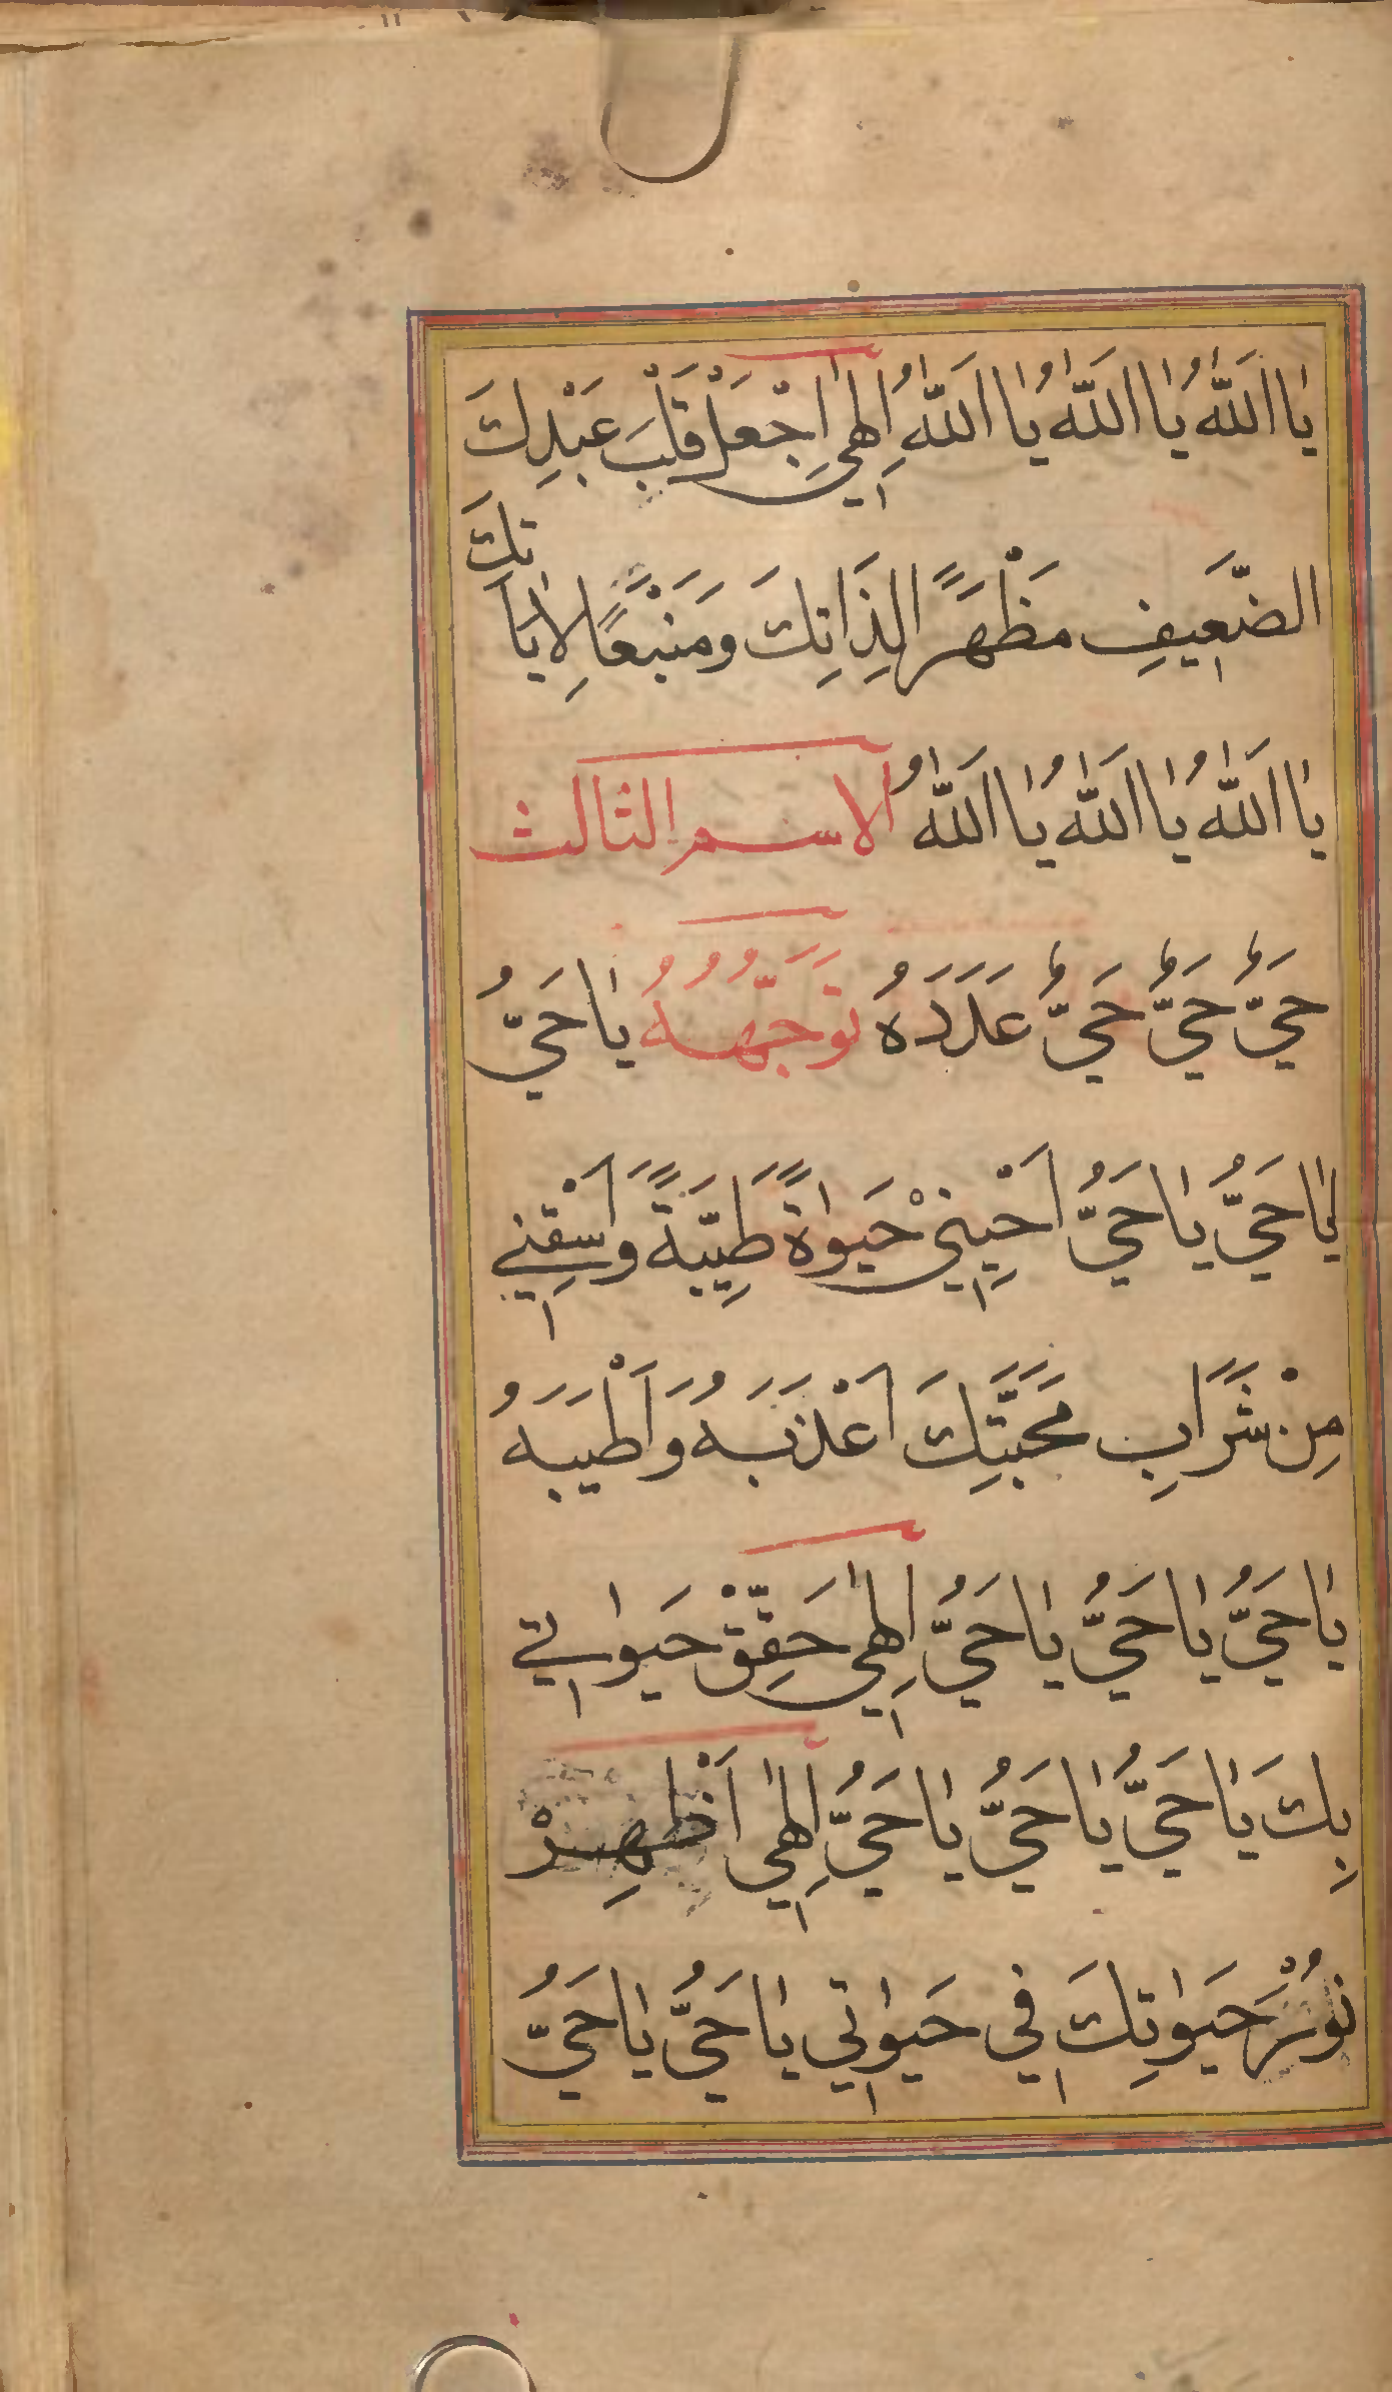 يَا اَللّٰهُ يَا اَللّٰهُ يَا اَللّٰهُ يَا اَللّٰهُ اِلٰهِي اِجْعَلْ قَلْبَ عَبْدِكَ
الضَّعِيفِ مَظْهَرًا لِذَاتِكَ وَمَنْبَعًا لِاٰيَاتِكَ
يَا اَللّٰهُ يَا اَللّٰهُ يَا اَللّٰهُ الاسم الثالث
حَيٌّ حَيٌّ حَيٌّ عَدَدَهُ تَوَجُّهُهُ يَا حَيُّ
يَا حَيُّ يَا حَيُّ اَحْيِنِيْ حَيٰوةً طَيِّبَةً وَاَسْقِنِي
مِنْ شَرَابِ مَحَبَّتِكَ اَعْذَبَهُ وَاَطْيَبَهُ
يَا حَيُّ يَا حَيُّ يَا حَيُّ اِلٰهِي حَقِّقْ حَيٰوتِي
بِكَ يَا حَيُّ يَا حَيُّ يَا حَيُّ اِلٰهِي اَظْهِرْ
نُوْرَ حَيٰوتِكَ فِي حَيٰوتِي يَا حَيُّ يَا حَيُّ